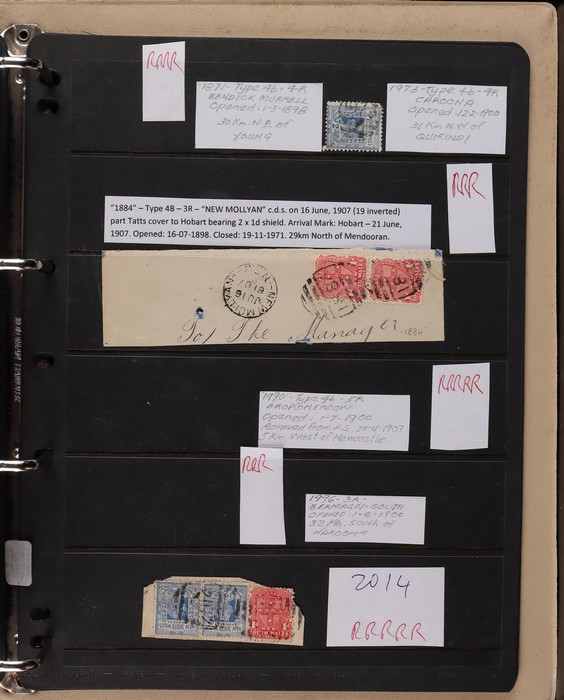 RRR
1871 - Type 4b - 4-R
BENDICK MURRELL
Opened: 1-3-1898
30Km. N.E. of
YOUNG
1973 - Type 4b - 4R
CAROONA
Opened: 12.2.1900
31Km N.W. of
QUIRINDI
RRR
"1884" – Type 4B – 3R – "NEW MOLLYAN" c.d.s. on 16 June, 1907 (19 inverted)
part Tatts cover to Hobart bearing 2 x 1d shield. Arrival Mark: Hobart – 21 June,
1907. Opened: 16-07-1898. Closed: 19-11-1971. 29km North of Mendooran.
NEW MOLLYAN
JU 16
To/ The Manager
1884
RRRRR
1990 - Type 4b - 5R
BROADMEADOW
Opened: 1-7-1900
Removed from R.S.
5Km West of Newcastle
RRR
1996 - 3R -
BERMAGUI-SOUTH
OPENED: 1-8-1900
32 Km. South of
NAROOMA
SOUTH WALES
2014
RRRRR